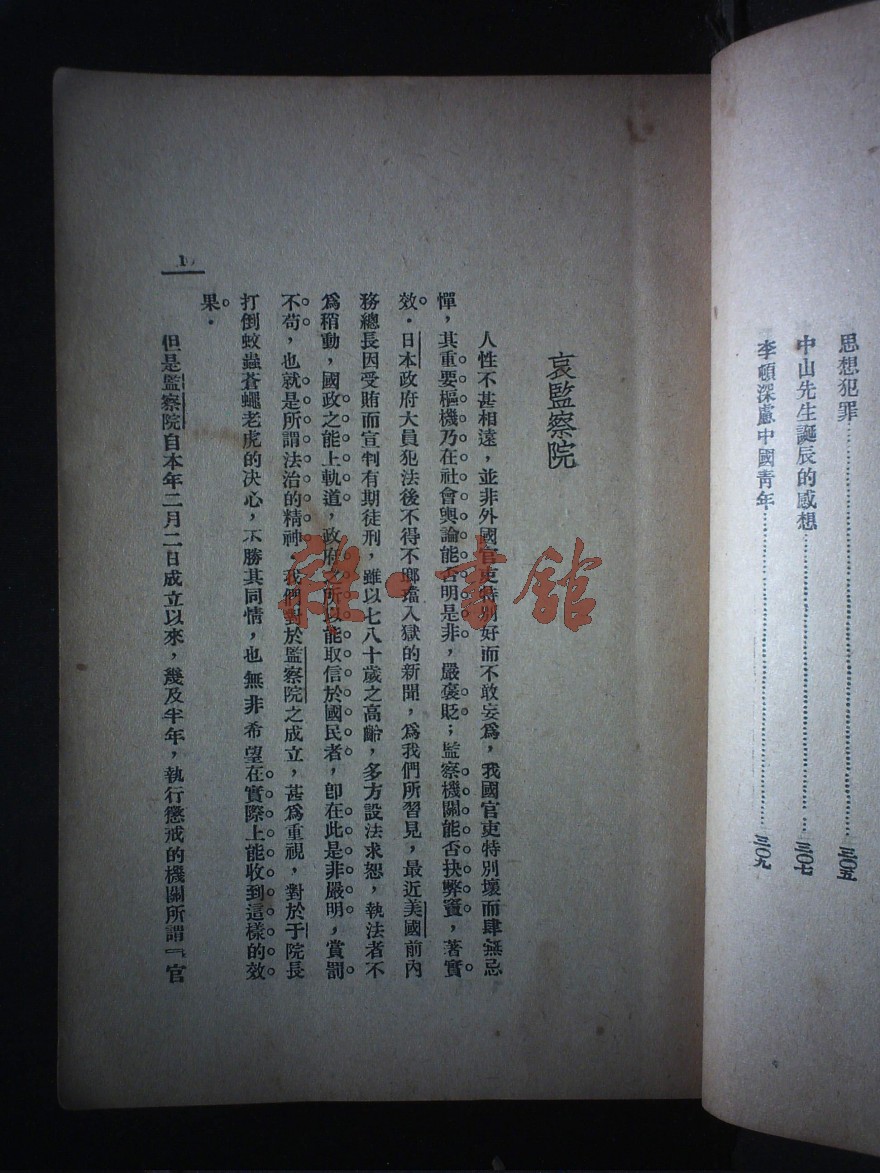 思想犯罪……………………三〇五
中山先生誕辰的感想……………………三〇七
李頓深慮中國青年……………………三〇九
哀監察院
人性不甚相遠，並非外國官吏特別好而不敢妄為，我國官吏特別壞而肆無忌
憚，其重要樞機乃在社會輿論能否明是非，嚴褒貶；監察機關能否抉弊竇，著實
效．日本政府大員犯法後不得不啷璫入獄的新聞，為我們所習見，最近美國前內
務總長因受賄而宣判有期徒刑，雖以七八十歲之高齡，多方設法求恕，執法者不
為稍動，國政之能上軌道，政府之所以能取信於國民者，卽在此是非嚴明，賞罰
不苟，也就是所謂法治的精神．我們對於監察院之成立，甚為重視，對於于院長
打倒蚊蟲蒼蠅老虎的決心，不勝其同情，也無非希望在實際上能收到這樣的效
果．
但是監察院自本年二月二日成立以來，幾及半年，執行懲戒的機關所謂『官
1
雜·書館